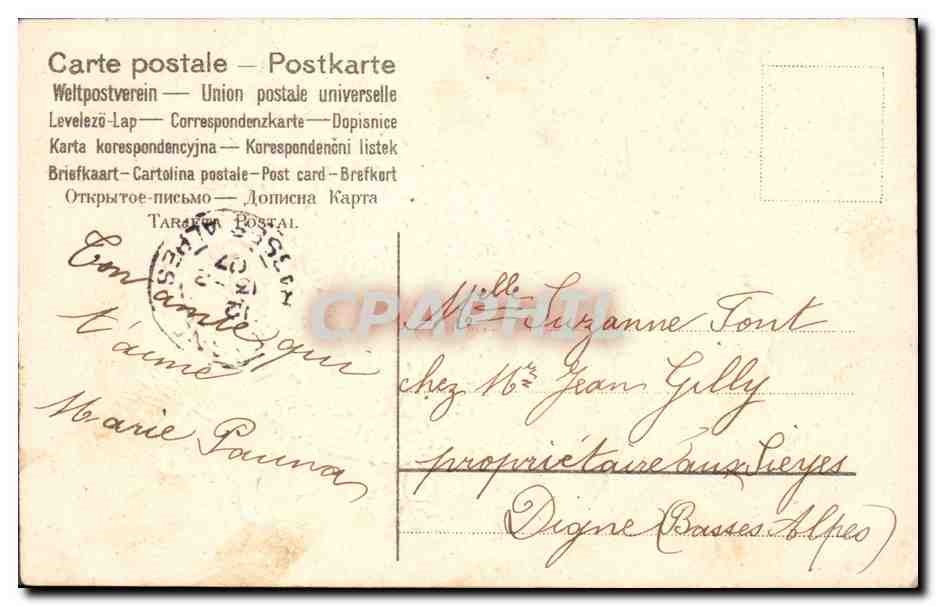 Carte postale – Postkarte
Weltpostverein — Union postale universelle
Levelezö-Lap — Correspondenzkarte — Dopisnice
Karta korespondencyjna — Korespondenční listek
Briefkaart – Cartolina postale – Post card – Brefkort
Открытое-письмо — Дописна Карта
TARJETA POSTAL
Ton amie qui
t'aime
Marie Pauna
Melle Suzanne Font
chez Mr Jean Gilly
propriétaire aux Sieyes
Digne (Basses-Alpes)
ALPES
07
CPAPHIL